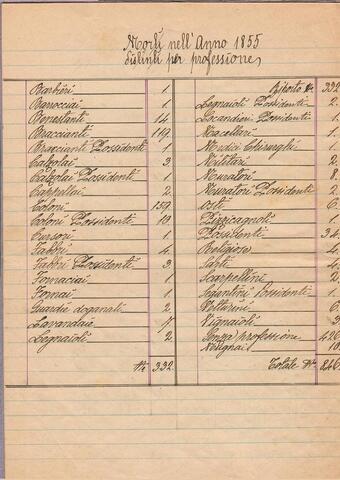 Morti nell'Anno 1855
distinti per professione
Barbieri 1
Barrocciai 1
Benestanti 14
Braccianti 119
Braccianti Possidenti 1
Calzolai 3
Calzolai Possidenti 1
Cappellai 2
Coloni 159
Coloni Possidenti 10
Cursori 1
Fabbri 4
Fabbri Possidenti 3
Fornaciai 1
Fornai 1
Guardie doganali 2
Lavandaie 7
Legnaioli 2
N° 332
Riporto N° 332
Legnaioli Possidenti 2
Locandieri Possidenti 1
Macellari 1
Medici Chirurghi 1
Militari 2
Muratori 8
Muratori Possidenti 2
Osti 6
Pizzicagnoli 1
Possidenti 34
Religiose 4
Sarti 4
Scarpellini 2
Segantini Possidenti 1
Vetturini 6
Vignaioli 3
Senza professione 426
Totale N° 846